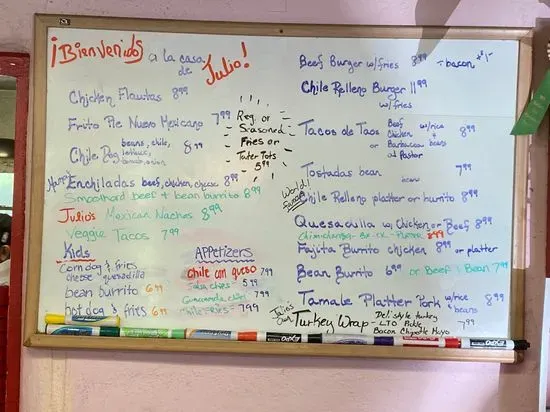 ¡Bienvenidos a la casa de Julio!
Chicken Flautas 8.99
Frito Pie Nuevo Mexicano 7.99
Chile Dog beans, chile, lettuce, tomato, onion 8.99
Enchiladas beef, chicken, cheese 8.99
Smothered beef + bean burrito 8.99
Julio's Mexican Nachos 8.99
Veggie Tacos 7.99
Reg. or
Seasoned
Fries or
Tater Tots
5.99
Kids
Corn dog & fries
cheese quesadilla
bean burrito 6.99
hot dog & fries 6.99
APPetizers
chile con queso 7.99
Salsa chips 5.99
Guacamole chips 7.99
chile fries - 7.99
Beef Burger w/fries 8.99 + bacon +$1-
Chile Relleno Burger 11.99
w/fries
Tacos de Taos Beef Chicken or Barbacoa al Pastor w/rice + beans 8.99
Tostadas bean 7.99
World Famous! Chile Relleno platter or burrito 8.99
Quesadilla w/ Chicken or Beef 8.99
Fajita Burrito chicken 8.99 or platter
Bean Burrito 6.99 or Beef & Bean 7.99
Tamale Platter Pork w/rice & beans 8.99
Julio's Own Turkey Wrap - Deli style turkey
LTO Pickle
Bacon Chipotle Mayo
7.99
EXPO